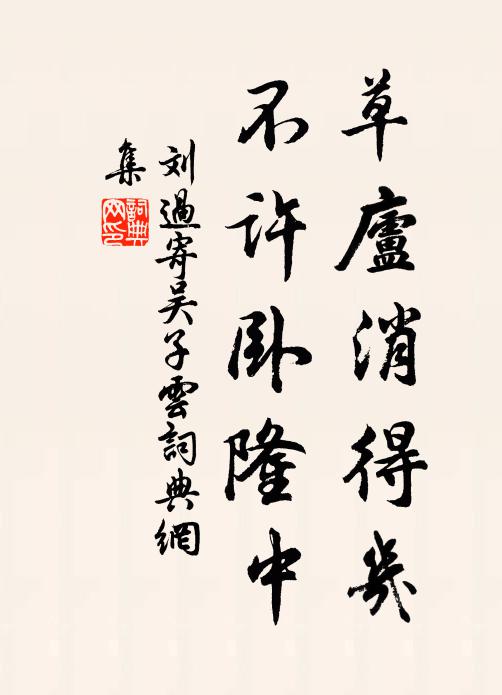 草廬消得幾
不許卧隆中
刘過寄吳子雲詞典網
集
詞典
网印